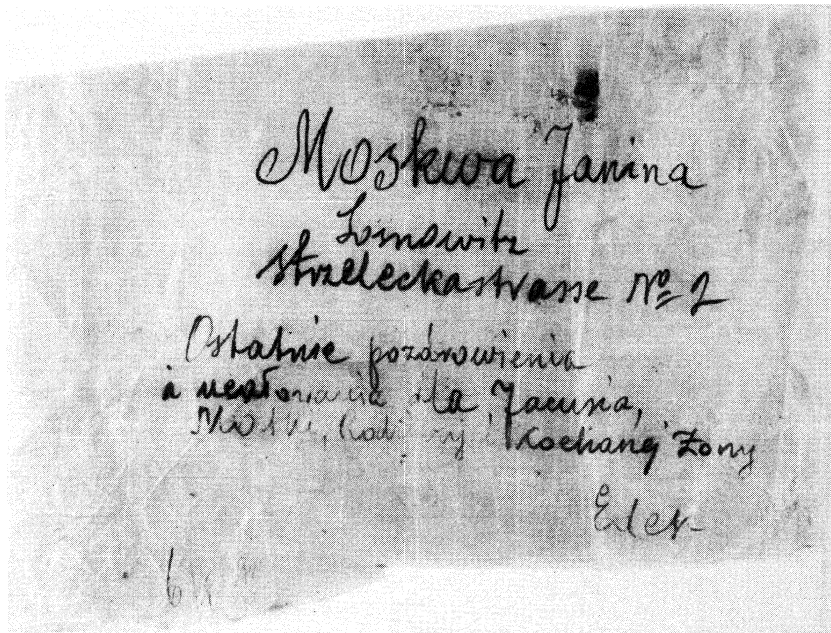 Moskwa Janina
Sosnowitz
Strzeleckastrasse № 2
Ostatnie pozdrowienia
i ucałowania dla Jacusia,
Matki, i Kochanej Żony
Edek